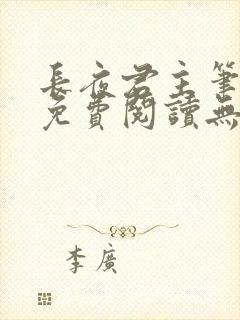 長夜君主筆
免費閱讀無
李廣